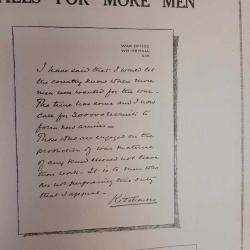 CALLS FOR MORE MEN
WAR OFFICE
WHITEHALL
S.W.
I have said that I would let
the country know when more
men were wanted for the war.
The time has come and I now
call for 300000 recruits to
form new armies.
Those who are engaged on the
production of war materiel
of any kind should not leave
their work. It is to men who
are not performing this duty
that I appeal.
Kitchener